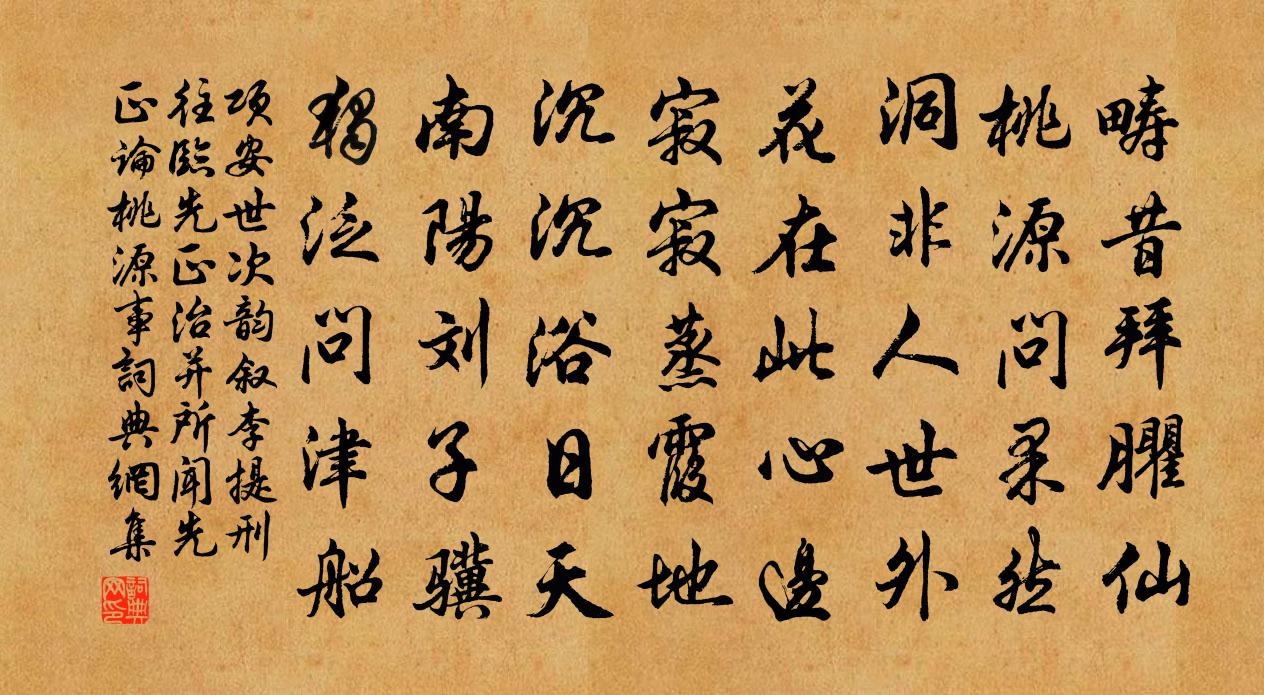 疇昔拜臞仙
桃源問果然
洞非人世外
花在此心邊
寂寂蒸霞地
沉沉浴日天
南陽刘子驥
獨泛問津船
项安世次韵叙李提刑
往臨先正治并所闻先
正論桃源事詞典網集
詞典网印